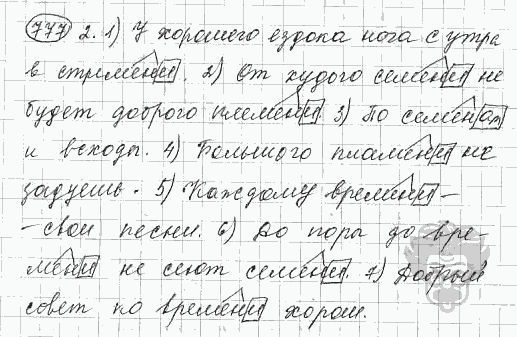 777 2. 1) У хорошего ездока нога с утра
в стремени. 2) От худого семени не
будет доброго племени. 3) По семенам
и всходы. 4) Большого пламени не
задуешь. 5) Каждому времени -
- свои песни. 6) До поры до вре-
мени не сеют семени. 7) Добрый
совет ко времени хорош.